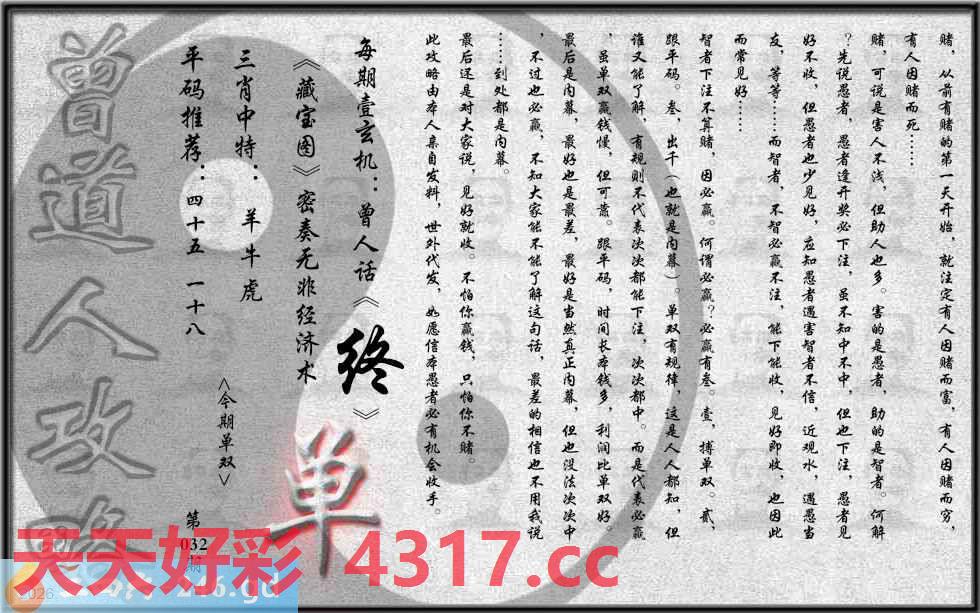 赌，从前有赌的第一天开始，就注定有人因赌而富，有人因赌而穷，
有人因赌而死……
赌，可说是害人不浅，但助人也多。害的是愚者，助的是智者。何解
？先说愚者，愚者逢开奖必下注，虽不知中不中，但也下注，愚者见
好不收，但愚者也少见好，应知愚者遇害智者不信，近观水，遇愚当
友，等等……而智者，不智必赢不注，能下能收，见好即收，也因此
而常见好……
智者下注不算赌，因必赢。何谓必赢？必赢有叁。壹，搏单双。贰，
跟平码。叁，出千（也就是内幕）。单双有规律，这是人人都知，但
谁又能了解，有规则不代表次次都能下注，次次都中。而是代表必赢
，虽单双赢钱慢，但可靠。跟平码，时间长本钱多，利润比单双好。
最后是内幕，最好也是最差，最好是当然真正内幕，但也没法次次中
，不过也必赢，不知大家能不能了解这句话，最差的相信也不用我说
……到处都是内幕。
最后还是对大家说，见好就收。不怕你赢钱，只怕你不赌。
此攻略由本人亲自发料，世外代发，如愿信本愚者必有机会收手。
每期壹玄机：曾人话《终》
《藏宝图》密奏无非经济术
三肖中特：羊牛虎
平码推荐：四十五 一十八
<今期单双>
单
第
032
期
曾道人攻略
天天好彩 4317.cc
246.gd
2026